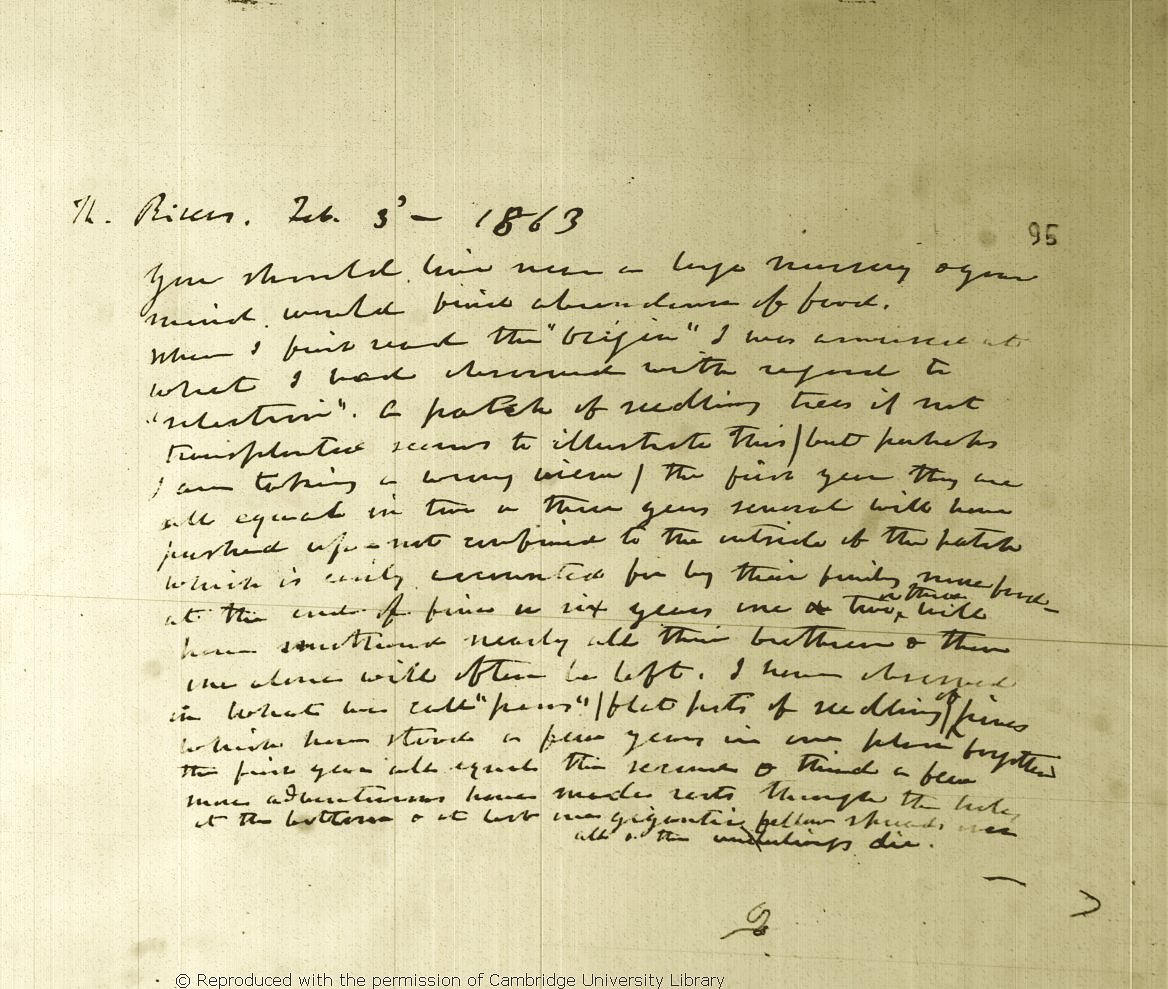 Th. Rivers. Feb. 3d — 1863
95
You should live near a large nursery & your
mind would find abundance of food.
When I first read the "Origin" I was amused at
what I had observed with regard to
"selection". A patch of seedling trees if not
transplanted seems to illustrate this/ but perhaps
I am taking a wrong view/ the first year they are
all equal in two or three years several will have
pushed up – not confined to the outside of the patch
which is easily accounted for by their finding more food–
at the end of five or six years one or two, or three will
have smothered nearly all their brethren & then
one alone will often be left. I have observed
in what we call "pans"/flat pots of seedling/ of pines
which have stood a few years in one place forgotten
the first year all equal the second & third a few
more adventurous have made roots through the holes
at the bottom & at last one gigantic fellow spreads over
all & the underlings die.
© Reproduced with the permission of Cambridge University Library